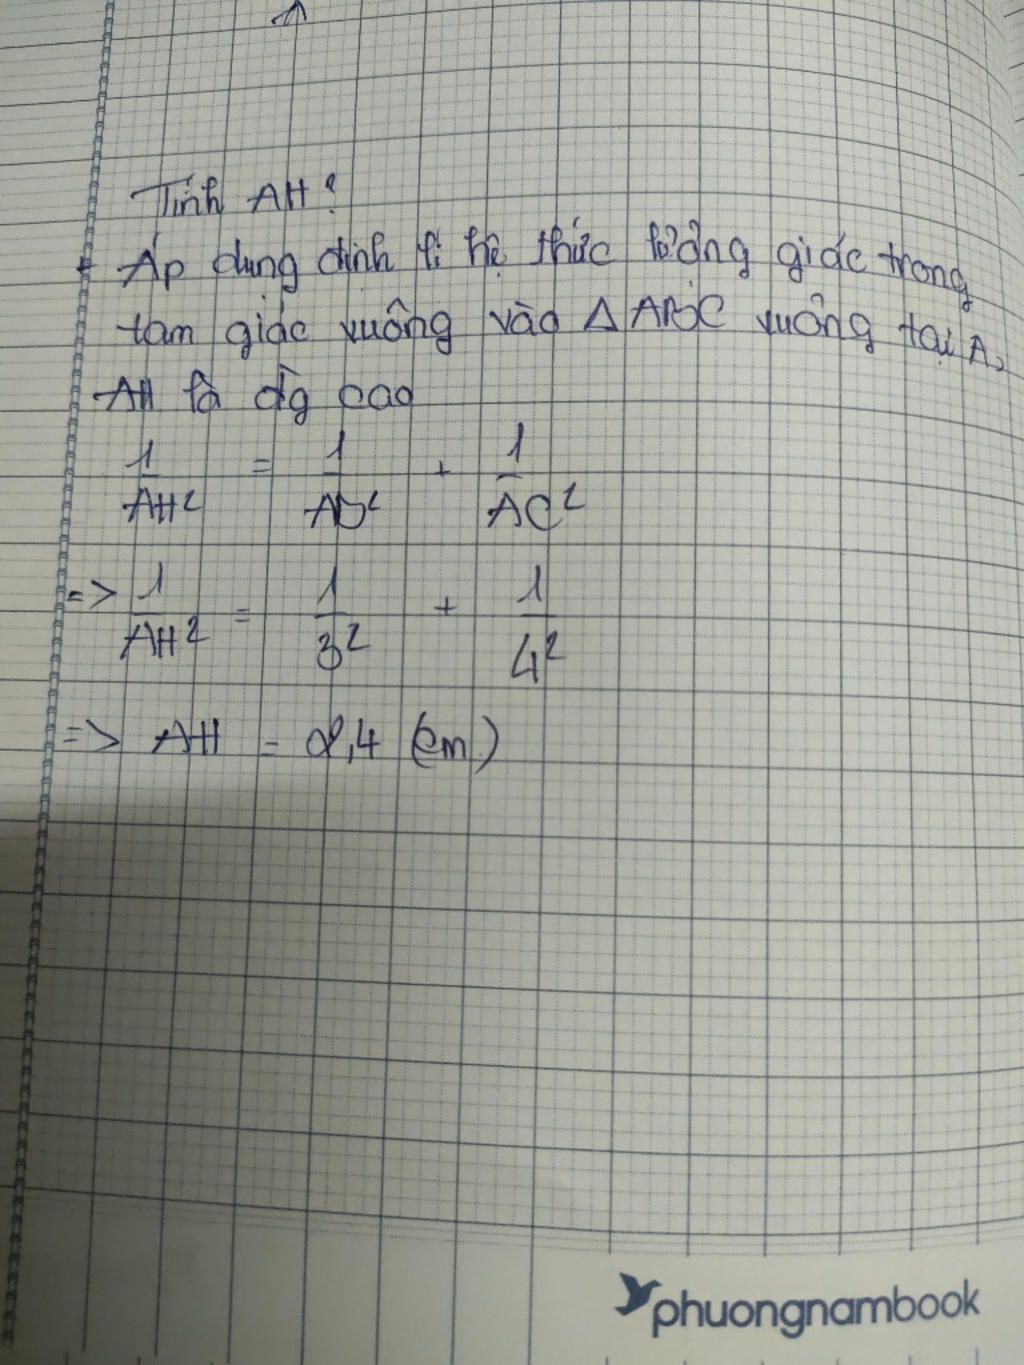 Tính AH?
+ Áp dụng định lí hệ thức lượng giác trong
tam giác vuông vào Δ ABC vuông tại A,
AH là đg cao
1/AH² = 1/AB² + 1/AC²
=> 1/AH² = 1/3² + 1/4²
=> AH = 2,4 (cm)
phuongnambook